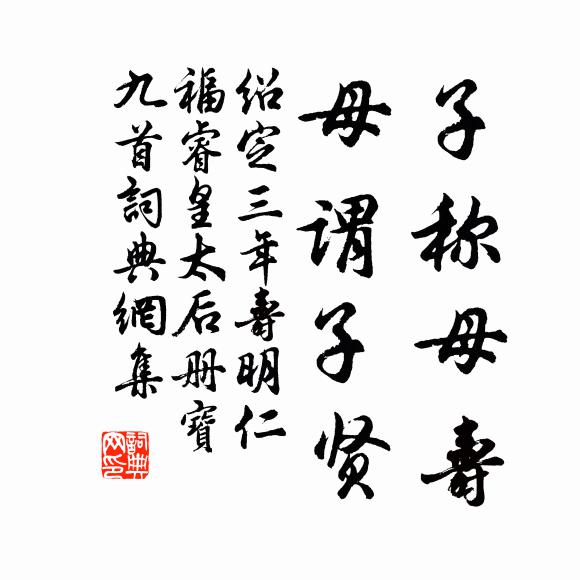 子称母壽
母謂子贤
绍定三年壽明仁
福睿皇太后册寶
九首詞典網集
詞典网印